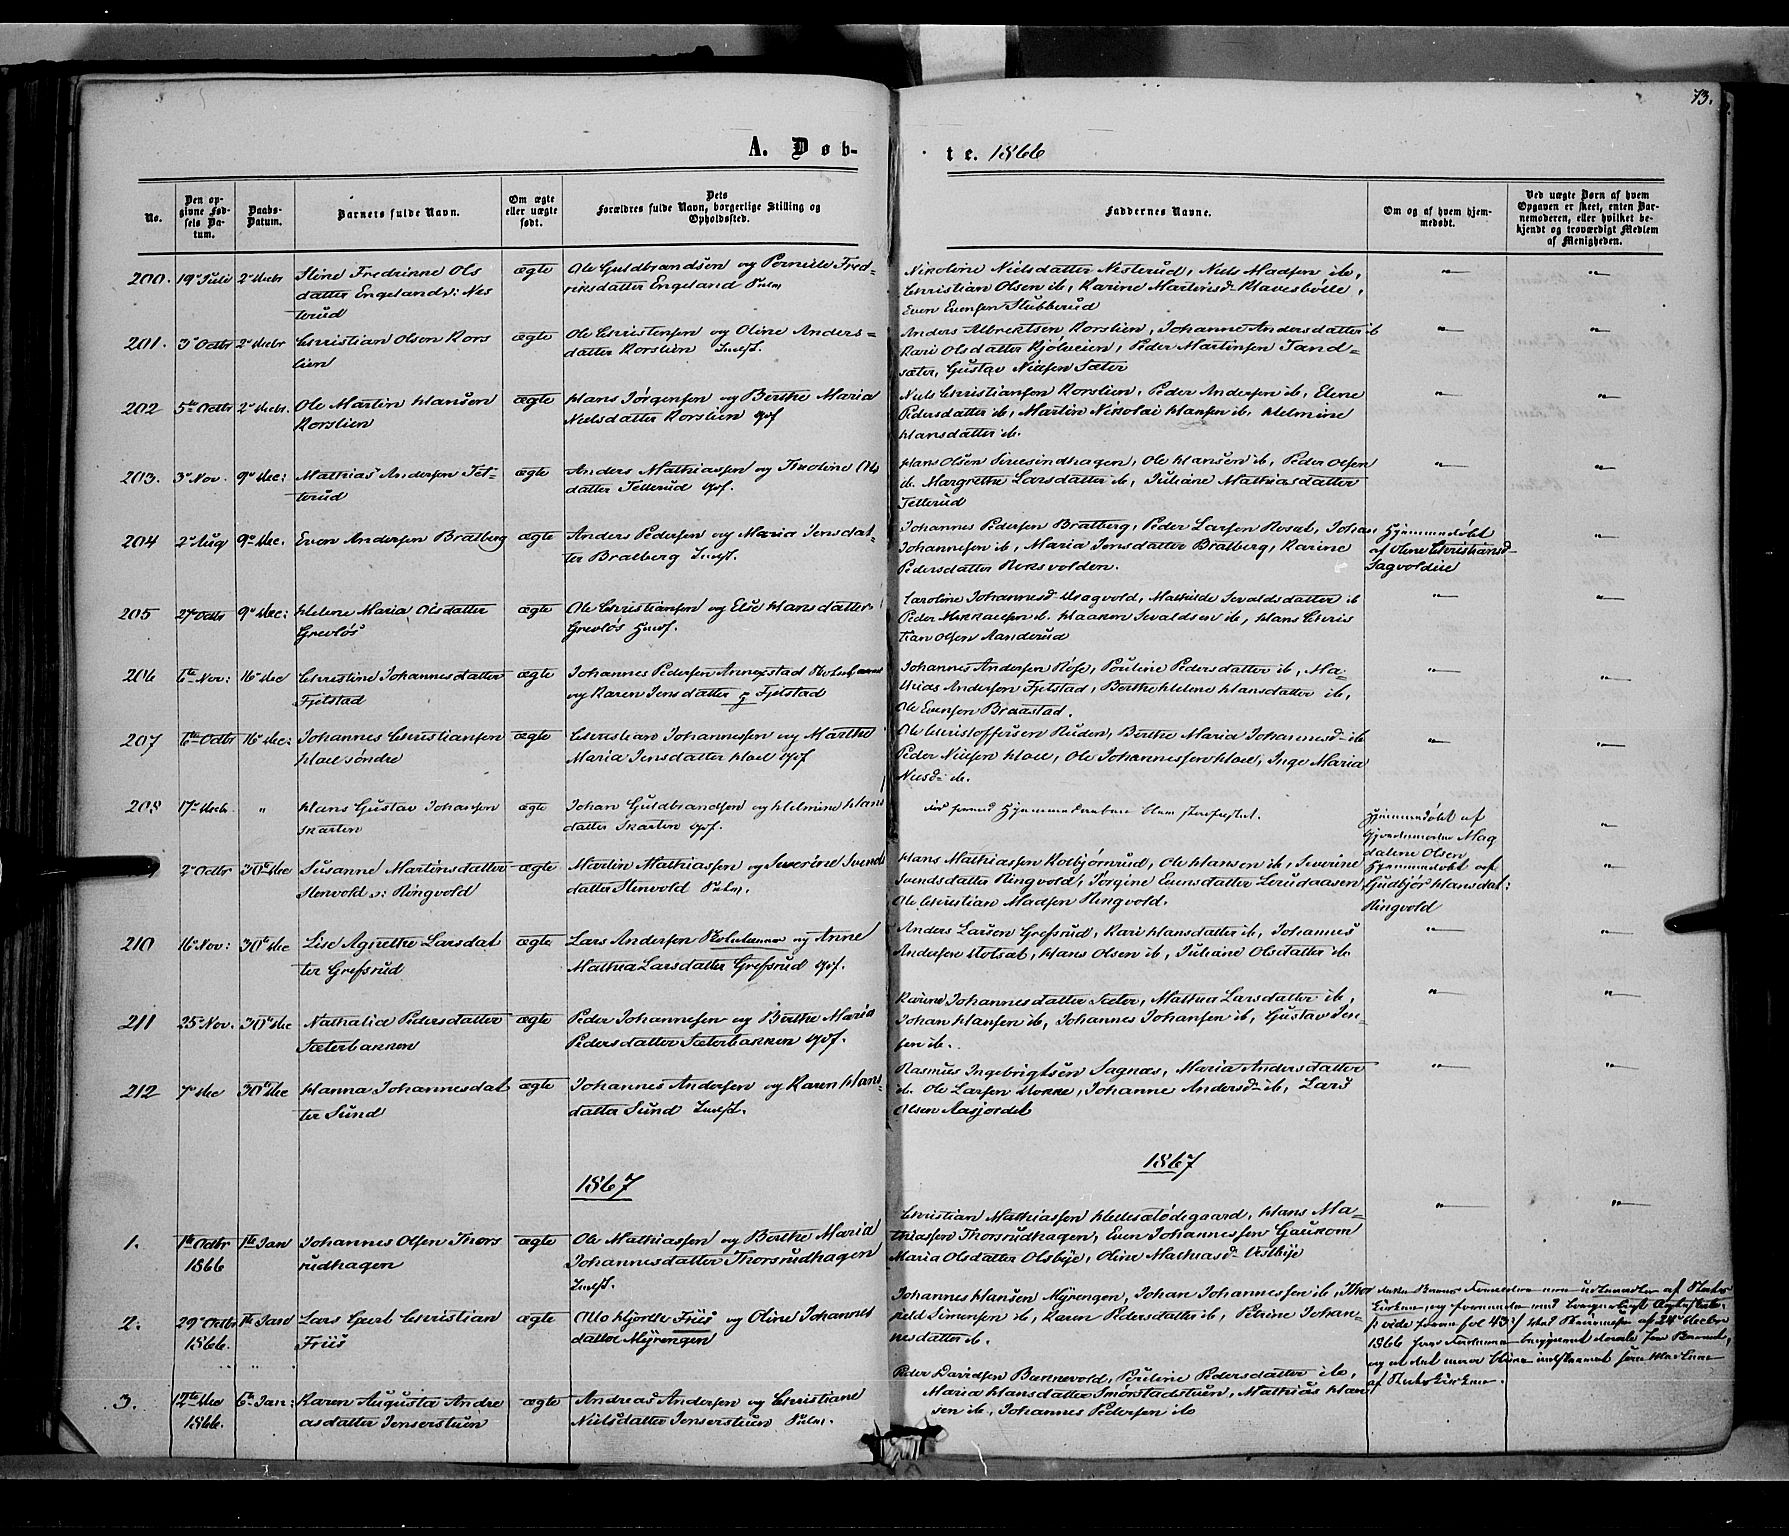 73.
A. Døb-
te. 1866
No.
Den op-
givne Fød-
sels Da-
tum.
Daabs-
Datum.
Barnets fulde Navn.
Om ægte
eller uægte
født.
Dets
Forældres fulde Navn, borgerlige Stilling og
Opholdssted.
Faddernes Navne.
Om og af hvem hjem-
medøbt.
Ved uægte Børn af hvem
Opgaven er skeet, enten Bar-
nemoderen, eller hvilket be-
kjendt og troværdigt Medlem
af Menigheden.
200. 19de Juli 2den Decbr Stine Fredrinne Ols
datter Engeland : Nes
terud
ægte
Ole Guldbrandsen og Pernille Fred-
riksdatter Engeland
Nikoline Nielsdatter Nesterud, Niels Madsen ib,
Christian Olsen ib, Karine Martinsd. Klavesbölle,
Even Evensen Stubberud
201. 3de Octbr 2den Decbr Christian Olsen Kors
lien
ægte
Ole Christensen og Oline Anders-
datter Korslien Indst.
Anders Albrektsen Korslien, Johanne Andersdatter ib
Kari Olsdatter Kjølveien, Peder Martinsen Sand-
sæter, Gustav Nielsen Sæter
202 5te Octbr 2den Decbr. Ole Martin Hansen
Korslien
ægte
Hans Jørgensen og Berthe Maria
Nielsdatter Korslien Gbf
Niels Christiansen Korslien, Peder Andersen ib, Elene
Pedersdatter ib, Martin Nikolai Hansen ib, Helmine
Hansdatter ib.
203. 3de Nov. 9de Dec: Mathias Andersen Tet-
terud
ægte
Anders Mathiassen og Theoline Ols
datter Tetterud Gbf.
Hans Olsen Sivesindhagen, Ole Hansen ib, Peder Olsen
ib. Margrethe Larsdatter ib, Juliane Mathiasdatter
Tetterud
204 2den Aug 9de Dec. Even Andersen Bratberg
ægte
Anders Pedersen og Maria Jensdat-
ter Bratberg Indst.
Johannes Pedersen Bratberg, Peder Larsen Roset, Johan
Johannesen ib, Maria Jensdatter Bratberg, Karine
Pedersdatter Roksvolden.
Hjemmedøbt
af Oline Christiansd
Sagvolden
205 27de Octbr 9de Dec: Helene Maria Olsdatter
Grevløs
ægte
Ole Christiansen og Else Hansdatter
Grevløs
Caroline Johannesd. Dragvold, Mathilde Sevaldsdatter ib
Peder Mikkaelsen ib. Haaken Sevaldsen ib, Hans Chris
tian Olsen Aanderud
206 6te Nov: 16de Dec Christine Johannesdatter
Fjelstad
ægte
Johannes Pedersen Annexstad
og Karen Jensdatter Fjelstad
Johannes Andersen Røse, Pauline Pedersdatter ib, Ma-
thias Andersen Fjelstad, Berthe Helene Hansdatter ib,
Ole Evensen Braastad.
207 6te Octbr 16de Dec: Johannes Christiansen
Hoel søndre
ægte
Christian Johannesen og Marthe
Maria Jensdatter Hoel Gbf
Ole Christoffersen Ruden, Berthe Maria Johannesd. ib
Peder Nielsen Hoel, Ole Johannessen Hoel, Inge Maria
Nielsd. ib.
208 17de Decb. " Hans Gustav Johansen
Skarten
ægte
Johan Guldbrandsen og Helmine Hans
datter Skarten Gbf.
Hjemmedøbt af
Gjordemoder Mag
dalene Olsen
2den Octbr 30te Dec Susanne Martinsdatter
Stenvold : Ringvold
ægte
Martin Mathiassen og Severine Svends
datter Stenvold
Hans Mathiassen Kolbjørnrud, Ole Hansen ib, Severine
Svendsdatter Ringvold, Jørgine Evensdatter Lerudaasen
Ole Christian Madsen Ringvold.
Hjemmedøbt af
Gudbjør Hansdat:
Ringvold
210 16de Nov: 30te Dec Lise Agnethe Larsdat
ter Grefsrud
ægte
Lars Andersen og Anne
Mathea Larsdatter Grefsrud Gbf.
Anders Larsen Grefsrud, Kari Hansdatter ib, Johannes
Andersen Stolsæt, Hans Olsen ib, Juliane Olsdatter ib.
211 25de Nov. 30te Dec Nathalia Pedersdatter
Sæterbakken
ægte
Peder Johannesen og Berthe Maria
Pedersdatter Sæterbakken Gbf.
Karine Johannesdatter Sæter, Mathea Larsdatter ib,
Johan Hansen ib, Johannes Johansen ib, Gustav Jen-
sen ib.
212 7de Dec 30te Dec Hanna Johannesdat
ter Sund
ægte
Johannes Andersen og Karen Hans-
datter Sund Indst.
Rasmus Ingebrigtsen Sagnæs, Maria Andersdatter
ib. Ole Larsen Stokke, Johanne Andersd. ib, Lars
Olsen Aasjordet
1867
1867
1. 1te Octbr
1866
1te Jan
Johannes Olsen Thors
rudhagen
ægte
Ole Mathiassen og Berthe Maria
Johannesdatter Thorsrudhagen
Indst.
Christian Mathiassen Hedesødegaard, Hans Ma-
thiassen Thorsrudhagen, Even Johannessen Gaukom
Maria Olsdatter Olsbye, Oline Mathiasd. Vestbye
2. 29de Octbr
1866.
1te Jan
Lars Gert Christian
Friis
ægte
Otto Hjorth Friis og Oline Johannes
datter Myrengen
Johannes Hansen Myrengen, Johan Johannessen ib, Thor
vald Simensen ib, Karen Pedersdatter ib, Petrine Johan-
nesdatter ib.
3. 12te Dec
1866.
6te Jan:
Karen Augusta Andre
asdatter Jenserstuen
ægte
Andreas Andersen og Christiane
Nielsdatter Jenserstuen
Peder Davidsen Bannevold, Pauline Pedersdatter ib,
Maria Hansdatter Smørstadstuen, Mathias Han
sen ib, Johannes Pedersen ib